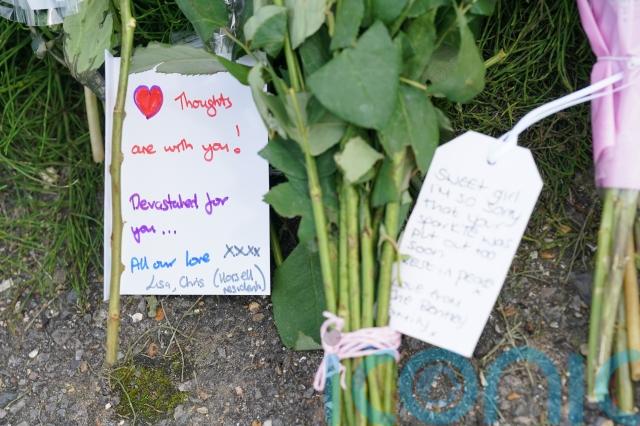 Thoughts
are with you!
Devastated for
you...
All our love xxxx
Lisa, Chris (Horsell
residents)
Sweet girl
I'm so sorry
that your
sparkle was
put out too
soon
Rest in peace
x
Love from
The
family
iconic